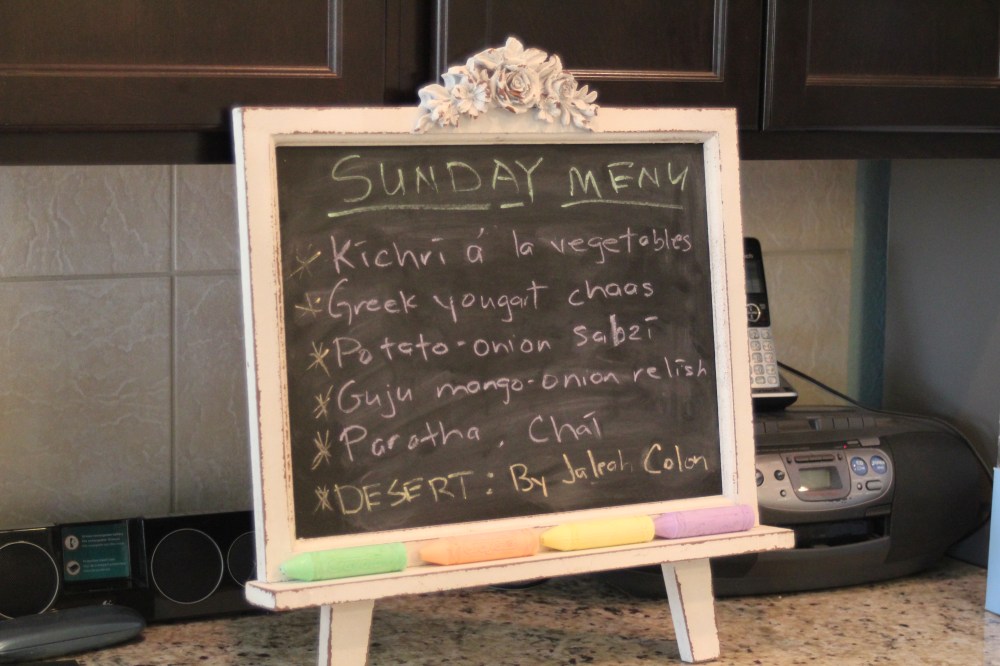 SUNDAY MENU
* Kichri á la vegetables
* Greek yougart chaas
* Potato-onion Sabzi
* Guju mango-onion relish
* Paratha, Chai
* DESERT: By Jaleah Colon